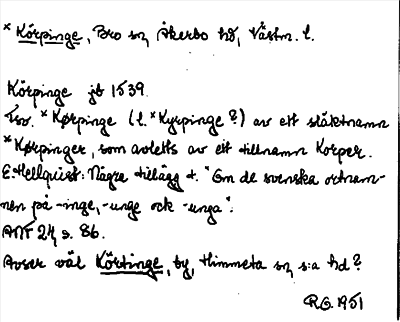 * Körpinge, Bro sn, Åkerbo hd, Västm. l.
Körpinge jb 1539.
Fsv. *Kørpinge (l. *Kyrpinge?) av ett släktnamn
*Kørpingar, som avletts av ett tillnamn Korper.
E. Hellquist: Några tillägg t. "Om de svenska ortnam-
nen på -inge, -unge och -unga".
ANF 24, s. 86.
Avser väl Körtinge, by, Himmeta sn, s:a hd?
RG. 1951